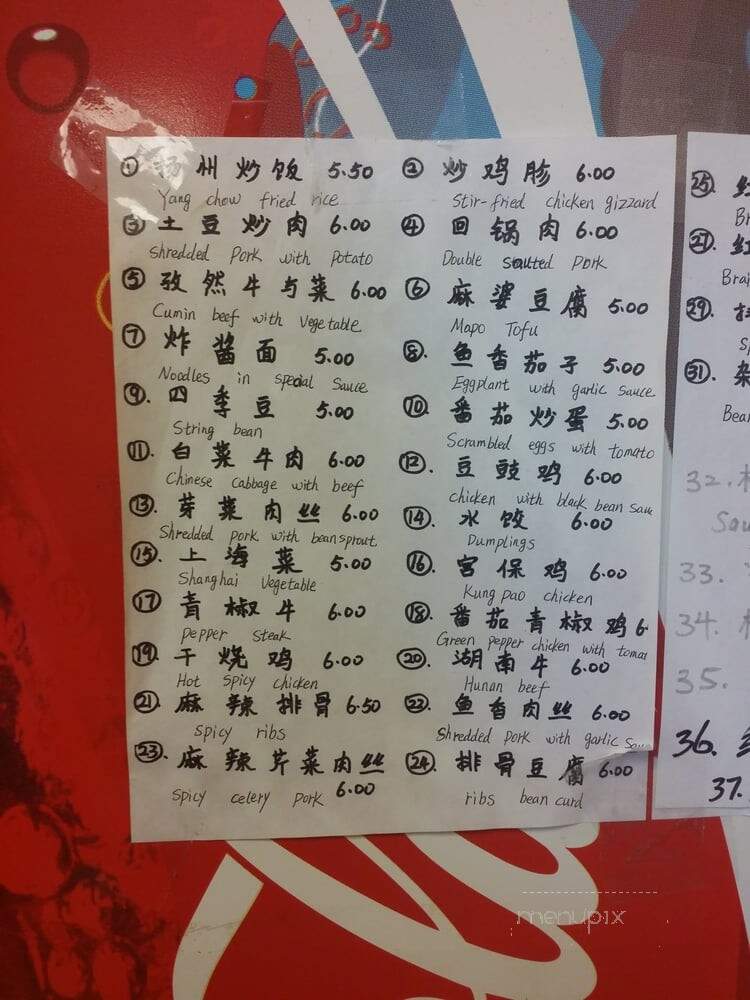 ① 扬州炒饭 5.50
Yang chow fried rice
② 炒鸡胗 6.00
Stir-fried chicken gizzard
③ 土豆炒肉 6.00
Shredded Pork with Potato
④ 回锅肉 6.00
Double sautted pork
⑤ 孜然牛与菜 6.00
Cumin beef with Vegetable
⑥ 麻婆豆腐 5.00
Mapo Tofu
⑦ 炸酱面 5.00
Noodles in special Sauce
⑧. 鱼香茄子 5.00
Eggplant with garlic sauce
⑨. 四季豆 5.00
String bean
⑩ 番茄炒蛋 5.00
Scrambled eggs with tomato
⑪. 白菜牛肉 6.00
Chinese Cabbage with beef
⑫. 豆豉鸡 6.00
chicken with black bean Sau
⑬. 芽菜肉丝 6.00
Shredded pork with beansprout
⑭. 水饺 6.00
Dumplings
⑮. 上海菜 5.00
Shanghai Vegetable
⑯. 宫保鸡 6.00
Kung pao chicken
⑰ 青椒牛 6.00
Pepper Steak
⑱. 番茄青椒鸡 6.
Green pepper chicken with tomat
⑲. 干烧鸡 6.00
Hot Spicy chicken
⑳. 湖南牛 6.00
Hunan beef
㉑. 麻辣排骨 6.50
Spicy ribs
㉒. 鱼香肉丝 6.00
Shredded pork with garlic Sau
㉓. 麻辣芹菜肉丝 6.00
Spicy celery pork
㉔. 排骨豆腐 6.00
ribs bean curd
㉕.
Br
㉗.
Brai
㉙.
㉛. 杂
Bear
32.
Sau
33.
34.
35.
36.
37.
menupix